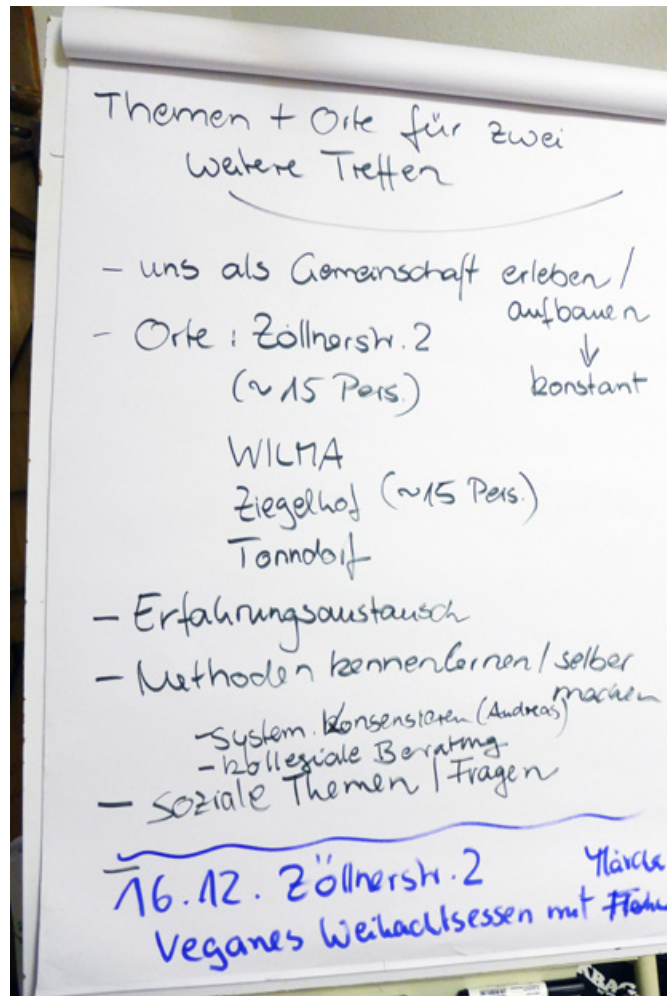 Themen + Orte für zwei
weitere Treffen
- uns als Gemeinschaft erleben /
aufbauen
↓
konstant
- Orte : Zöllnerstr. 2
(~ 15 Pers.)
WILMA
Ziegelhof (~15 Pers.)
Tonndorf
- Erfahrungsaustausch
- Methoden kennenlernen / selber
machen
- System. Konsensieren (Andreas)
- kollegiale Beratung
- soziale Themen / Fragen
16.12. Zöllnerstr. 2
Veganes Weihachtsessen mit